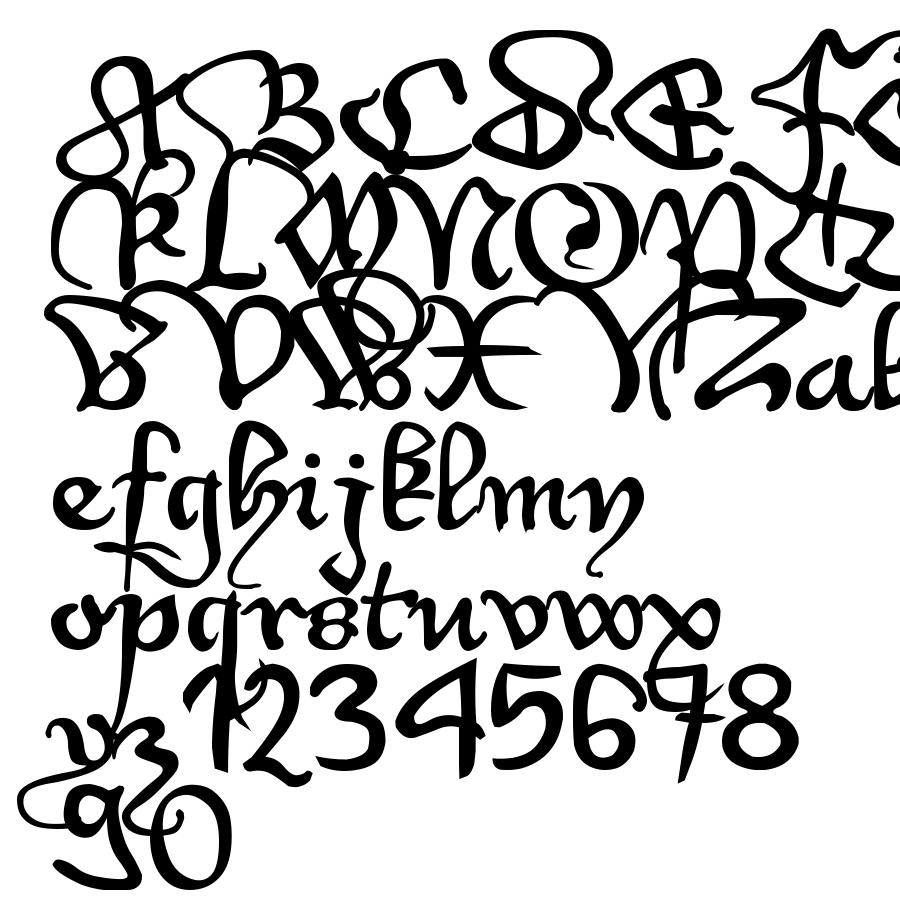 ABCDEF
KLMNOP
UVWXYZab
efghijklmn
opqrstuvwx
yz12345678
90